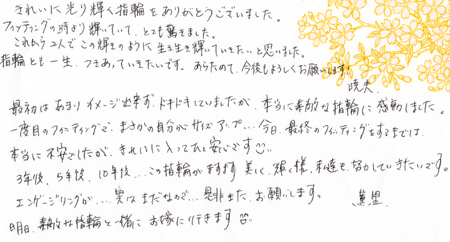 きれいに光り輝く指輪をありがとうございました。
フィッティングの時より輝いていて、とても驚きました。
これから2人でこの輝きのように生き生き輝いていきたいと思いました。
指輪とも一生、つきあっていきたいです。あらためて、今後もよろしくお願いします!
最初はあまりイメージ出来ず、ドキドキしていましたが、本当に素敵な指輪に感動しました。
一度目のフィッティングで、まさかの自分がサイズアップ…今日、最終のフィッティングをするまでは、
本当に不安でしたが、きれいに入ってひと安心です
3年後、5年後、10年後…この指輪がますます美しく、輝く様、私達も努力していきたいです。
エンゲージリングが…実はまだなので…是非また、お願いします。
明日、素敵な指輪と一緒にお嫁に行きます